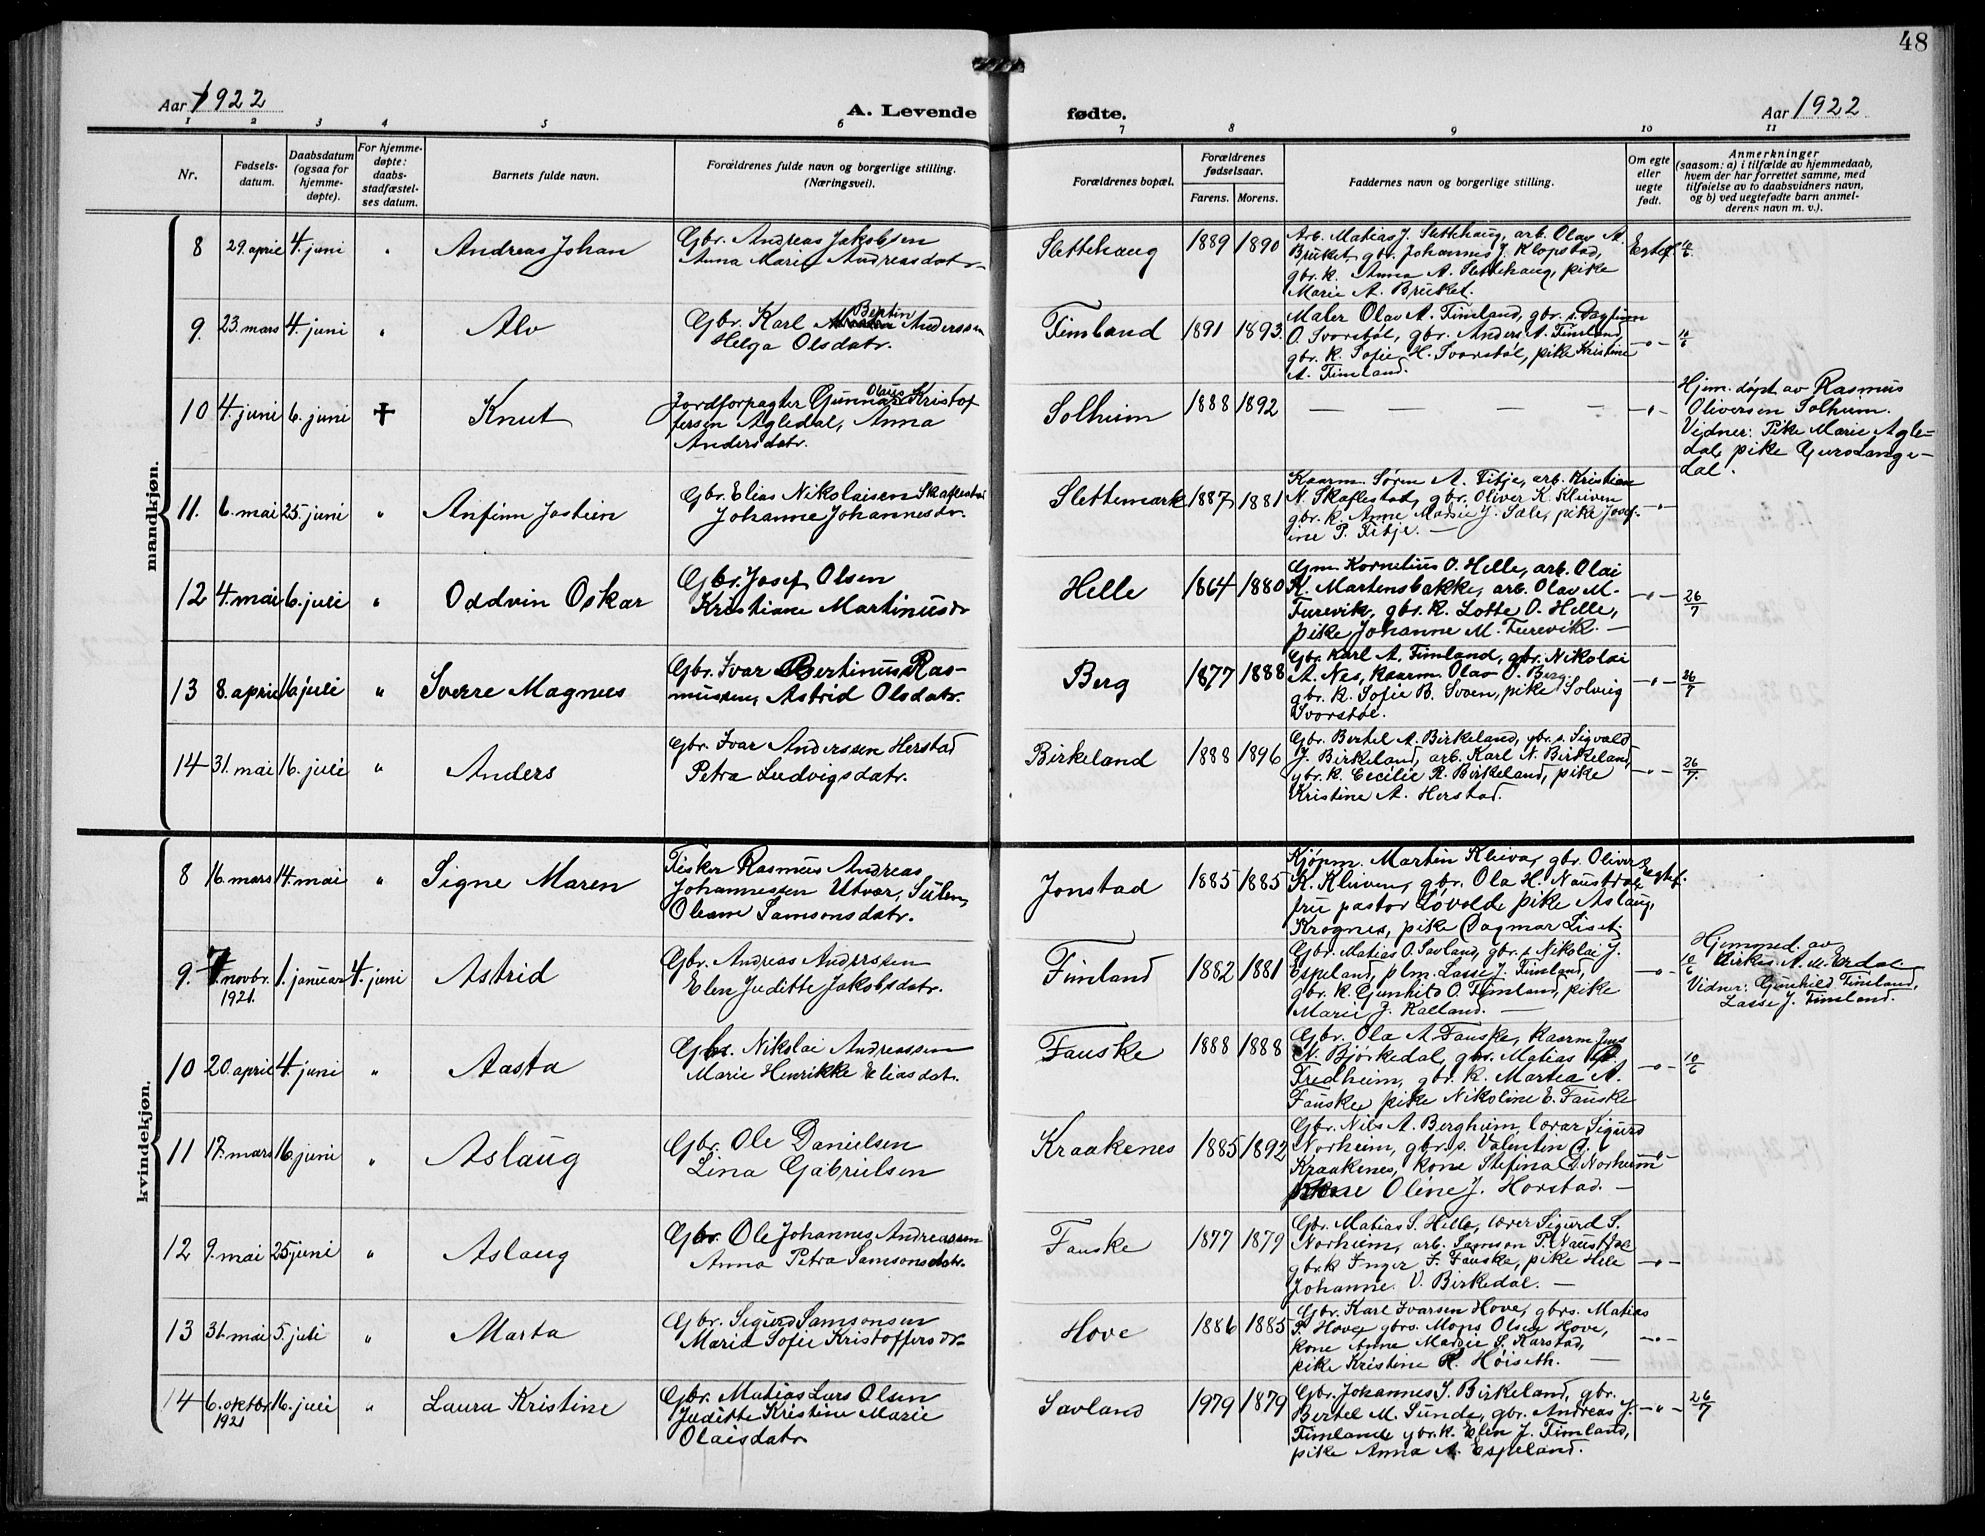 48
Aar 1922
A. Levende fødte.
Aar 1922
1 2 3 4 5 6 7 8 9 10 11
Nr.
Fødsels-
datum.
Daabsdatum
(ogsaa for
hjemme-
døpte).
For hjemme-
døpte:
daabs-
stadfæstel-
ses datum.
Barnets fulde navn.
Forældrenes fulde navn og borgerlige stilling.
(Næringsvei).
Forældrenes bopæl.
Forældrenes
fødselsaar.
Farens. Morens.
Faddernes navn og borgerlige stilling.
Om egte
eller
uegte
født.
Anmerkninger
(saasom: a) i tilfælde av hjemmedaab,
hvem der har forrettet samme, med
tilføielse av to daabsvidners navn,
og b) ved uegtefødte barn anmel-
derens navn m. v.).
mandkjøn.
8 29. april 4. juni " Andreas Johan
Gbr. Andreas Jakobsen
Anna Marie Andreasdatr.
Slettehaug 1889 1890
Arb. Matias J. Slettehaug, arb. Olav A.
Bruket, gbr. Johannes J. Klopstad,
gbr. k. Anna A. Slettehaug, pike
Marie A. Bruket.
Egtef. 10/6
9. 23. mars 4. juni " Alv
Gbr. Karl Bertin Anderssen
Helga Olsdatr.
Timland 1891 1893.
Maler Olav A. Timland, gbr. s. Dagfinn
O. Svorstøl, gbr. Anders A. Timland,
gbr. k. Sofie H. Svorstøl, pike Kristine
A. Timland.
-"- 10/6
10 4. juni 6. juni + Knut
Jordforpagter Gunnar Olaus Kristof
fersen Agledal, Anna
Andersdatr.
Solheim 1888 1892 — — — — -"-
Hjem. døpt av Rasmus
Oliversen Solheim.
Vidner: Pike Marie Agle-
dal, pike Guro Lange-
dal.
11. 6. mai 25. juni " Anfinn Jostein
Gbr. Elias Nikolaisen Skaflestad
Johanne Johannesdr.
Slettemark 1887 1881
Kaarm. Søren A. Titje, arb. Kristian
N. Skaflestad, gbr. Oliver K. Kleiven
gbr. k. Anne Marie J. Sæle, pike Josef-
ine P. Titje. —
-"-
12 4. mai 6. juli " Oddvin Oskar
Gbr. Josef Olsen
Kristiane Martinusdr
Helle 1864 1880
Gm. Kornelius O. Helle, arb. Olai
K. Martensbakke, arb. Olav M.
Turevik, gbr. k. Lotte O. Helle,
pike Johanne M. Turevik. —
-"- 26/7
13 8. april 16. juli " Sverre Magnus
Gbr. Ivar Bertinus Ras-
mussen, Astrid Olsdatr.
Berg 1877 1888
Gbr. Karl A. Timland, gbr. Nikolai
A. Nes, kaarm. Olav O. Berg,
gbr. k. Sofie B. Svoen, pike Solveig
Svorstøl.
-"- 26/7
14 31. mai 16. juli " Anders
Gbr. Ivar Anderssen Herstad
Petra Ludvigsdatr.
Birkeland 1888 1896
Gbr. Bertel A. Birkeland, gbr. s. Sigvald
J. Birkeland, arb. Karl N. Birkeland,
gbr. k. Cecilie R. Birkeland, pike
Kristine A. Herstad.
-"- 26/7.
kvindekjøn.
8 16. mars 14. mai " Signe Maren
Fisker Rasmus Andreas
Johannessen Utvær, Sulen,
Oleane Samsonsdatr.
Jonstad 1885 1885
Kjøpm. Martin Kleiva, gbr. Oliver
K. Kleiven, gbr. Ola H. Naustdal
fru pastor Løvold, pike Aslaug
Krognes, pike Dagmar Liset.
Egtef.
9. 7. novbr. 1921. 1. januar 4. juni Astrid
Gbr. Andreas Anderssen
Elen Juditte Jakobsdatr.
Timland 1882 1881
Gbr. Matias O. Savland, gbr. s. Nikolai J.
Espeland, plm. Lasse J. Timland,
gbr. k. Gunhild O. Timland, pike
Marie J. Kalland. —
-"- 10/6
Hjemmed. av
Kirkes. A. M. Erdal.
Vidner: Gunhild Timland,
Lasse J. Timland.
10 20. april 4. juni " Aasta
Gbr. Nikolai Andreassen
Marie Henrikke Eliasdatr.
Fauske 1888 1888
Gbr. Ola A. Fauske, kaarm. Jens
N. Bjørkedal, gbr. Matias P.
Fredheim, gbr. k. Martea A.
Fauske, pike Nikoline E. Fauske
-"- 10/6
11 17. mars 16. juni " Aslaug
Gbr. Ole Danielsen
Lina Gabrielsen
Kraakenes 1885 1892
Gbr. Nils A. Bergheim, lærar Sigurd
Norheim, gbr. s. Valentin G.
Kraakenes, kone Stefina D. Norheim
Oline J. Horstad. —
-"-
12 9. mai 25. juni " Aslaug
Gbr. Ole Johannes Andreassen
Anna Petra Samsonsdatr.
Fauske 1877 1879
Gbr. Matias S. Helle, lærer Sigurd S.
Norheim, arb. Samson P. Naustdal
gbr. k Inger F. Fauske, pike Hele
Johanne V. Birkedal. —
-"-
13 31. mai 5. juli " Marta
Gbr. Sigurd Samsonsen
Maria Sofie Kristoffersdr
Hove 1886 1885
Gbr. Karl Ivarsen Hove, gbrs. Matias
P. Hove, gbrs. Mons Olsen Hove,
kone Anne Marie S. Karstad,
pike Kristine R. Høiseth. —
-"-
14 6. oktbr. 1921 16. juli " Laura Kristine
Gbr. Matias Lars Olsen
Juditte Kristine Marie
Olaisdatr.
Savland 1979 1879
Gbr. Johannes S. Birkeland, gbr.
Bertel M. Sunde, gbr. Andreas J.
Timland, gbr. k. Elen J. Timland,
pike Anna A. Espeland.
-"- 26/7